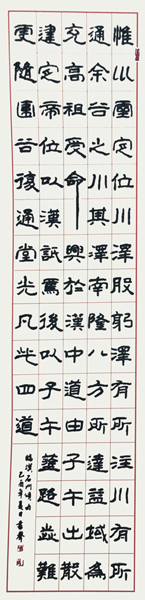 惟巛靈定位川澤股躬澤有所注川有所
通余谷之川其澤南隆八方所達益域為
充高祖受命興於漢中道由子午出散
建定帝位以漢詆焉後以子午塗路歮難
更隨圍谷復通堂光凡此四道
臨漢石門頌